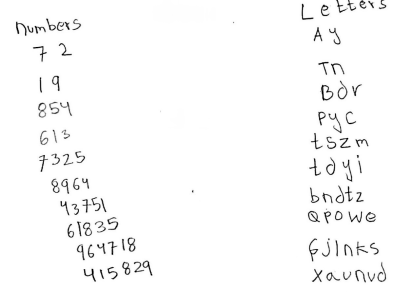 Numbers
7 2
19
854
613
7325
8964
43751
61835
964718
415829
Letters
Ay
Tn
Bdr
Pyc
tszm
tdyi
bndtz
QPOwe
Gjlnks
xaunvd